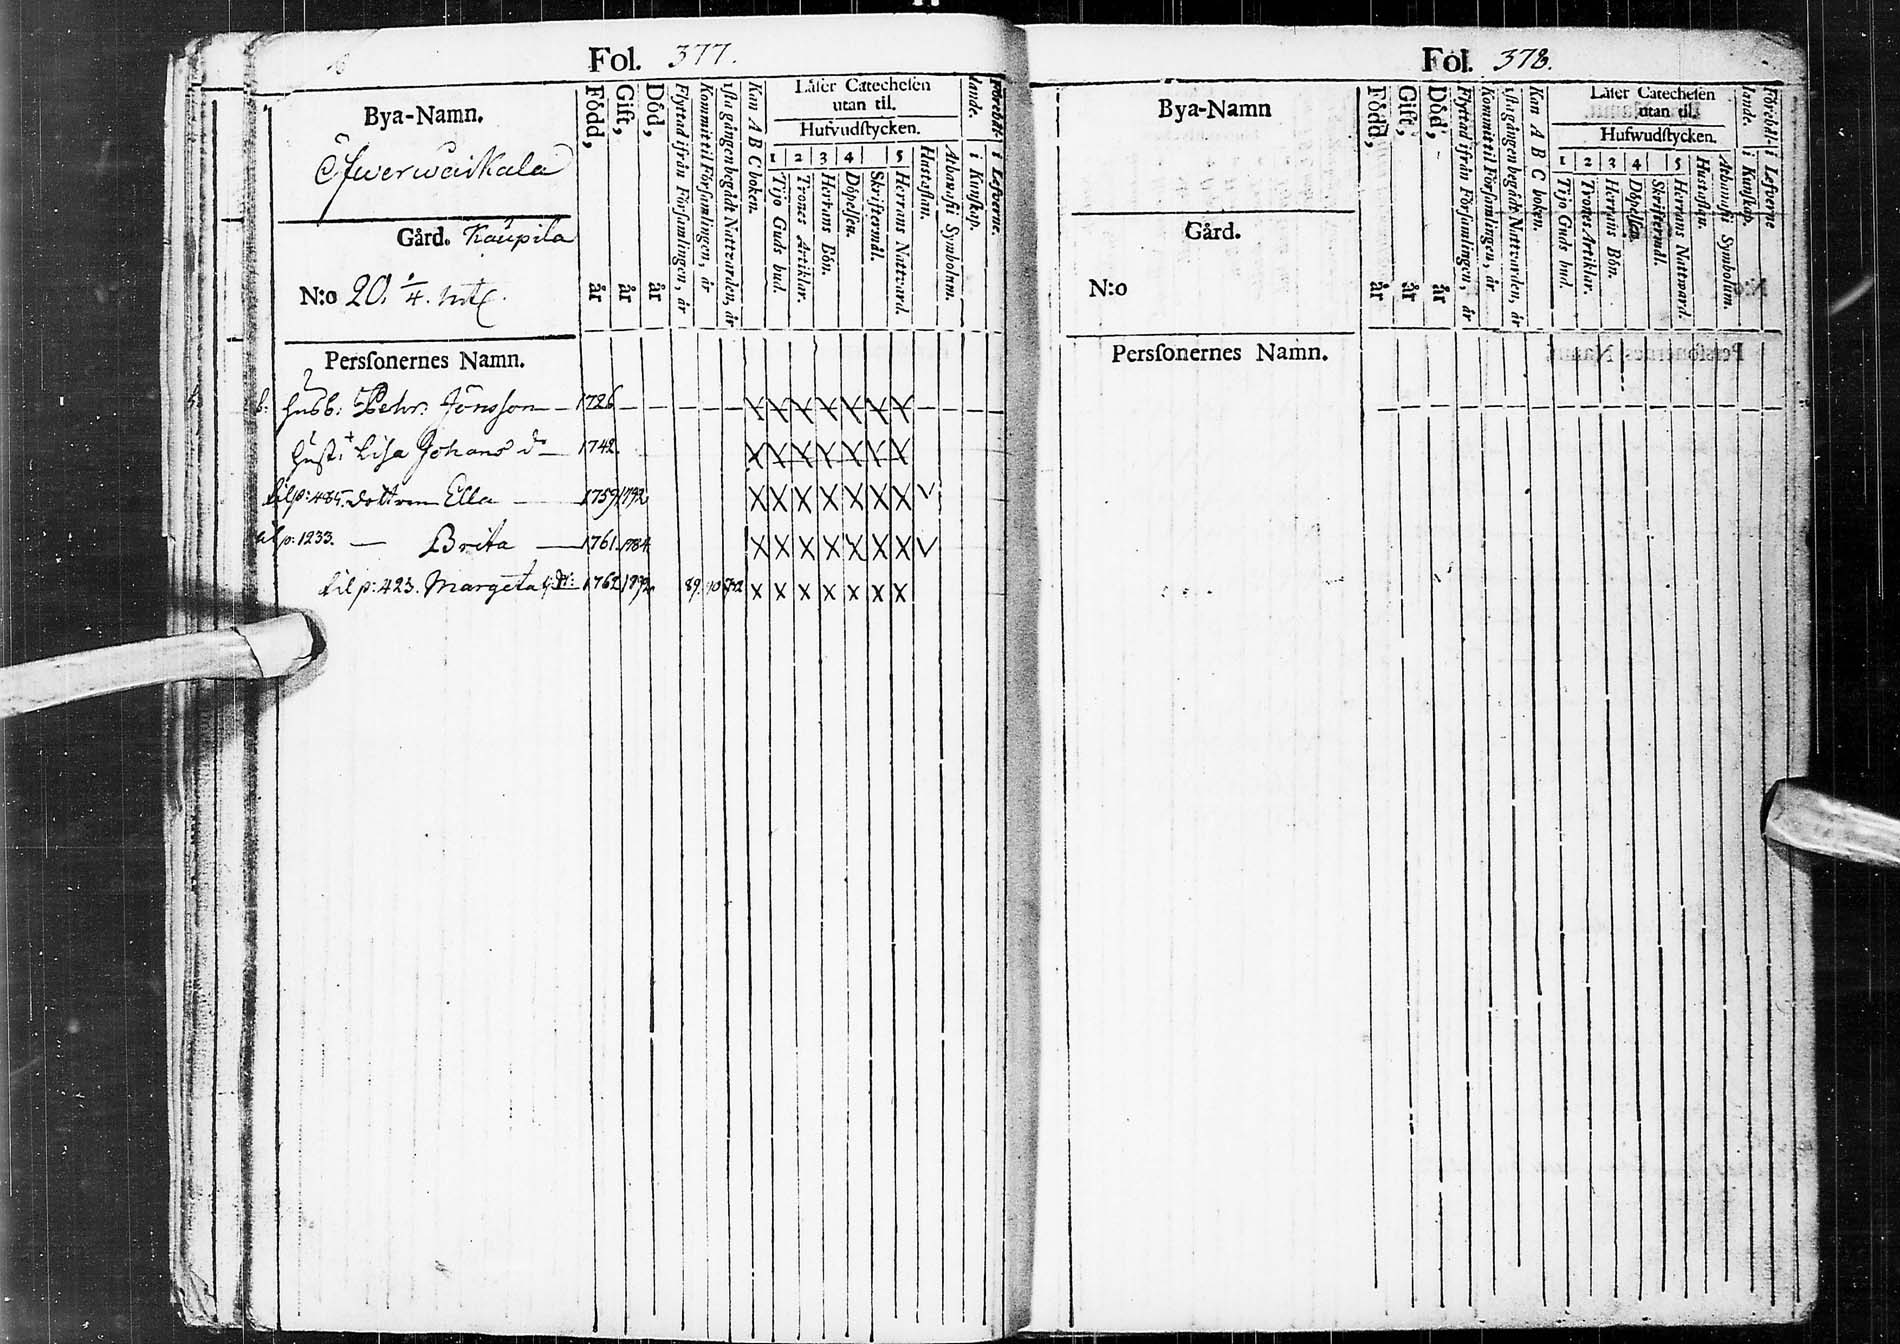 Fol. 377.
Bya-Namn.
Öfwerwaikala
Gård. Kaupila
N:o 20. 1/4. mtl.
Personernes Namn.
Född, år
Gift, år
Död, år
Flyttad ifrån Församlingen, år
Kommit til Församlingen, år
1sta gången begådt Nattvarden, år
Kan A B C boken.
Läser Catechesen
utan til.
Hufvudstycken.
1 2 3 4 5
Tijo Guds bud.
Trones Artiklar.
Herrans Bön.
Döpelsen.
Skriftermål.
Herrans Nattvard.
Hustaflan.
Athanasii Symbolum.
Förehål-
lande.
i Kunskap.
i Lefverne.
b: Husb: Pehr Jönsson 1726 X X X X X X X
Hust: + Lisa Johans dr 1742. X X X X X X X
til p: 485. dottren Ella 1759 1792 X X X X X X X V
til p: 1233. — Brita 1761 1784 X X X X X X X V
til p: 423. Margeta 1762 1792 89. 90 X X X X X X X
Fol. 378.
Bya-Namn
Gård.
N:o
Personernes Namn.
Född, år
Gift, år
Död, år
Flyttad ifrån Församlingen, år
Kommit til Församlingen, år
1sta gången begådt Nattvarden, år
Kan A B C boken.
Läser Catechesen
utan til.
Hufwudstycken.
1 2 3 4 5
Tijo Guds bud.
Trones Artiklar.
Herrans Bön.
Döpelsen.
Skriftermål.
Herrans Nattward.
Hustaflan.
Athanasii Symbolum.
Förehål-
lande.
i Kunskap.
i Lefverne